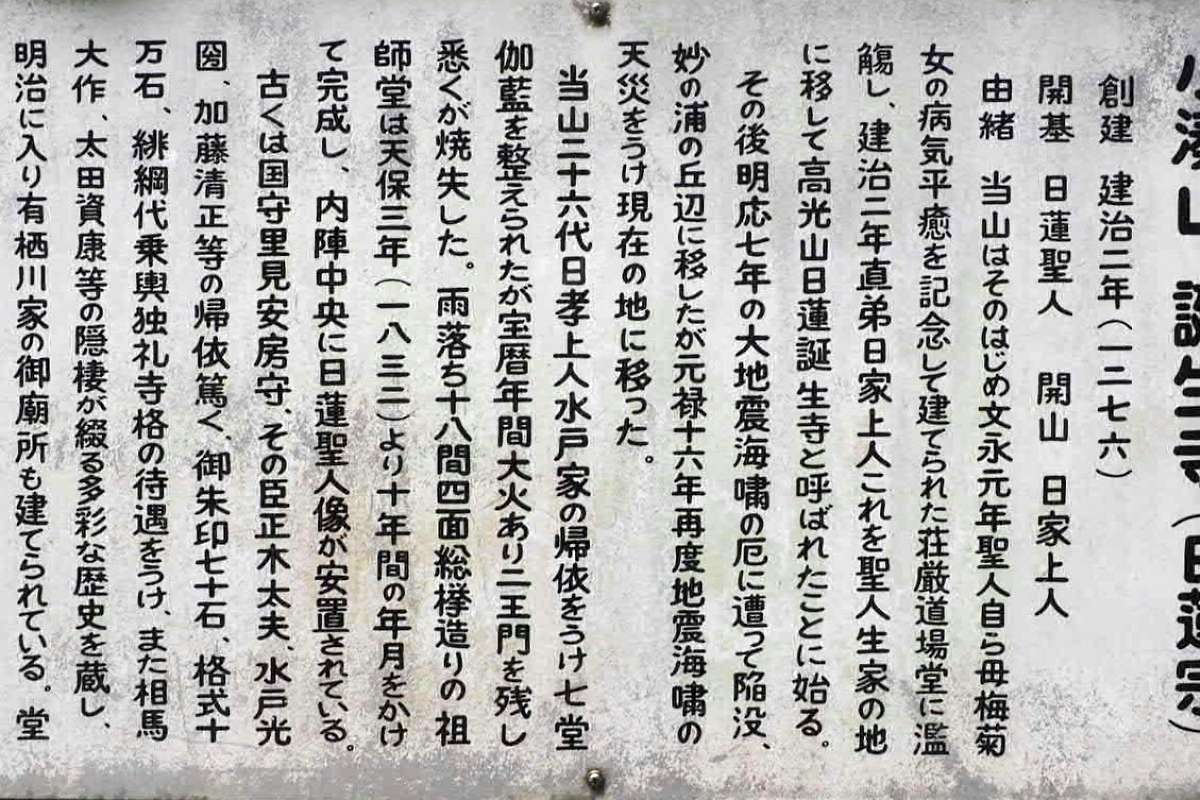 小湊山 誕生寺（日蓮宗）
創建　建治二年（一二七六）
開基　日蓮聖人　開山　日家上人
由緒　当山はそのはじめ文永元年聖人自ら母梅菊
女の病気平癒を記念して建てられた荘厳道場堂に濫
觴し、建治二年直弟日家上人これを聖人生家の地
に移して高光山日蓮誕生寺と呼ばれたことに始る。
その後明応七年の大地震海嘯の厄に遭って陥没、
妙の浦の丘辺に移したが元禄十六年再度地震海嘯の
天災をうけ現在の地に移った。
当山二十六代日孝上人水戸家の帰依をうけ七堂
伽藍を整えられたが宝暦年間大火あり二王門を残し
悉くが焼失した。雨落ち十八間四面総欅造りの祖
師堂は天保三年（一八三二）より十年間の年月をかけ
て完成し、内陣中央に日蓮聖人像が安置されている。
古くは国守里見安房守、その臣正木太夫、水戸光
圀、加藤清正等の帰依篤く、御朱印七十石、格式十
万石、緋綱代乗輿独礼寺格の待遇をうけ、また相馬
大作、太田資康等の隠棲が綴る多彩な歴史を蔵し、
明治に入り有栖川家の御廟所も建てられている。堂